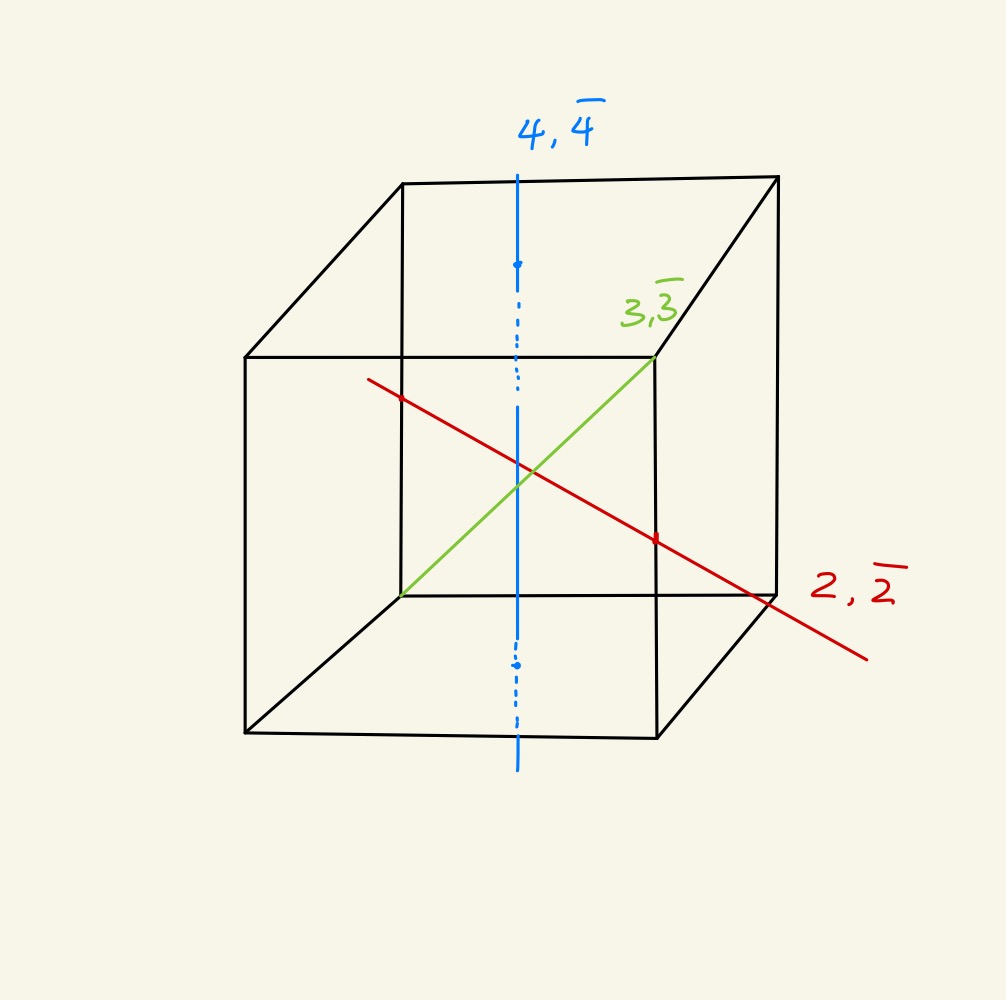 4, 4̅
3, 3̅
2, 2̅